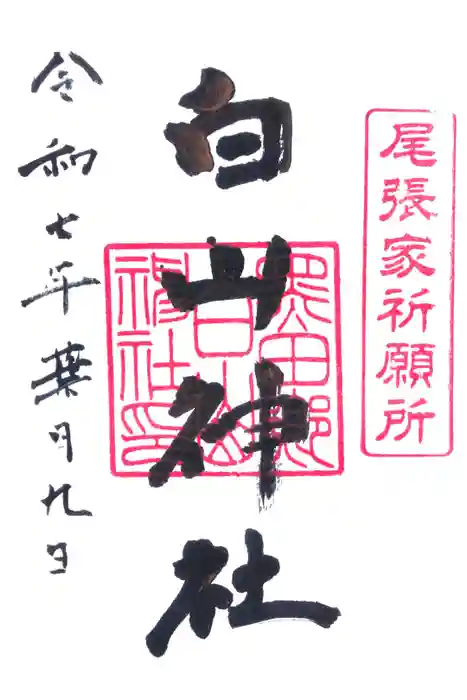 尾張家祈願所
白山神社
黒田郷
白山
神社印
令和七年葉月九日